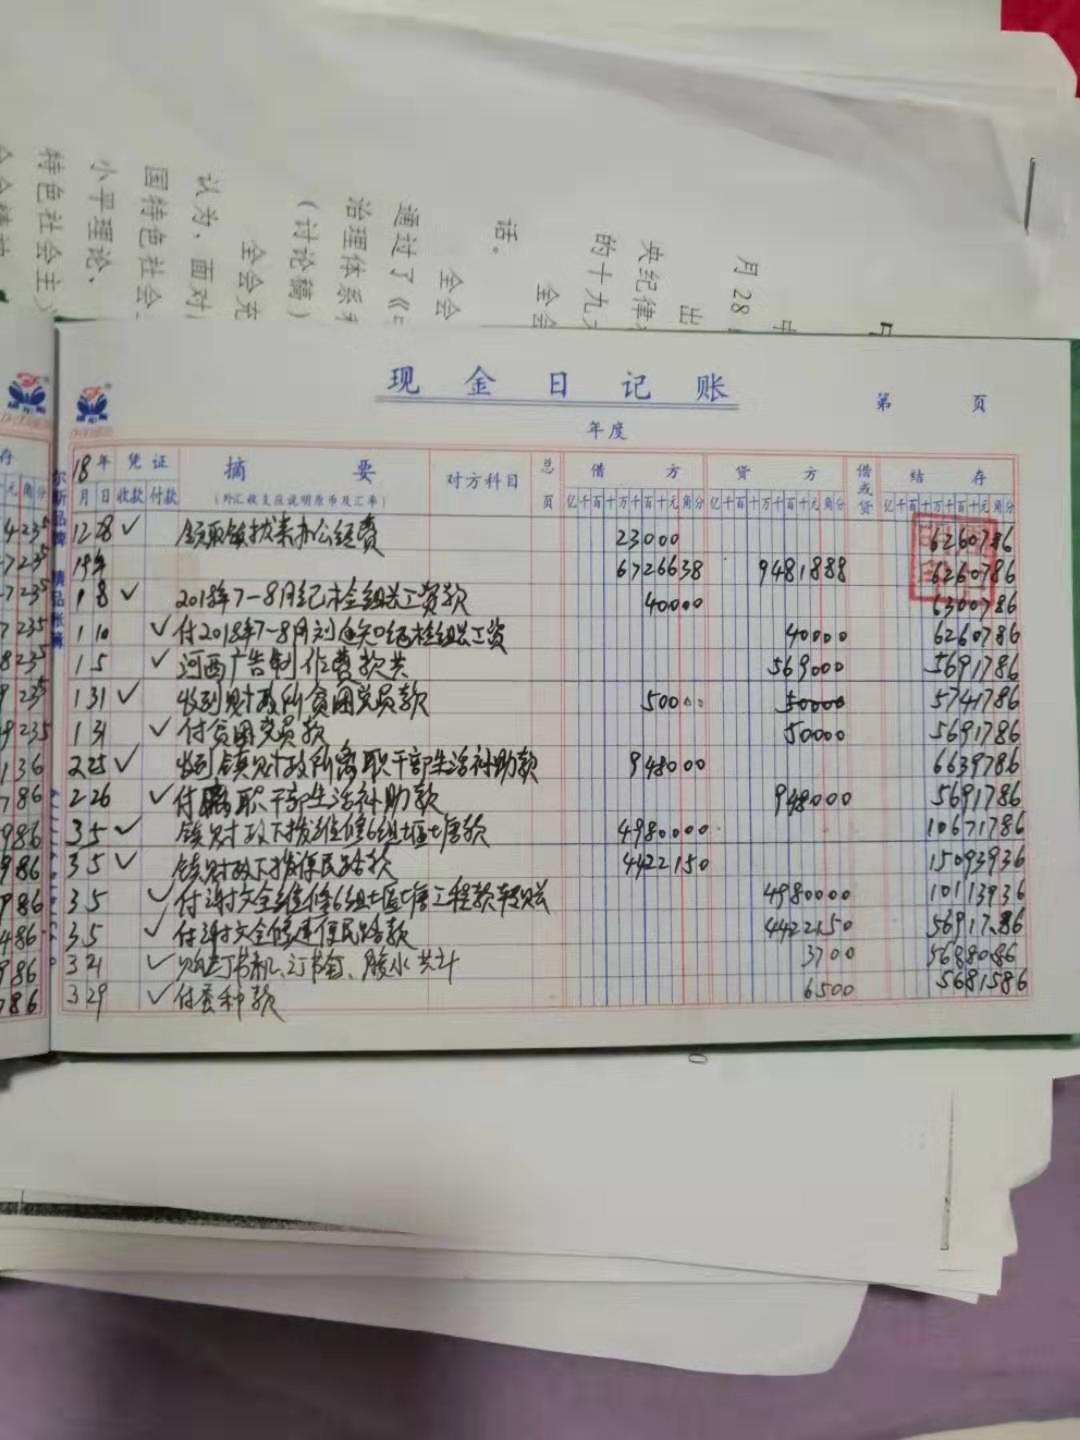 月28
中
出
央纪律
的十九
全会
话。
全会
通过了《
治理体系
(讨论稿)
全会充
认为,面对
国特色社会
小平理论、
特色社会主
现金日记账
第 页
年度
18年 凭证 摘要 对方科目 总页 借方 贷方 借或贷 结存
月 日 收款 付款 (外汇收支应说明原币及汇率) 亿千百十万千百十元角分 亿千百十万千百十元角分 亿千百十万千百十元角分
12 28 ✓ 领取镇拨来办公经费 23000 6260786
19年 6726638 9481888 6260786
1 8 ✓ 2018年7-8月纪检组长工资款 40000 6300786
1 10 ✓ 付2018年7-8月刘 纪检组长工资 40000 6260786
1 5 ✓ 河西广告制作费款共 569000 5691786
1 31 ✓ 收到财政所贫困党员款 50000 50000 5741786
1 31 ✓ 付贫困党员款 50000 5691786
2 25 ✓ 收到镇财政所离职干部生活补助款 948000 6639786
2 26 ✓ 付离职干部生活补助款 948000 5691786
3 5 ✓ 镇财政下拨维修6组堰塘款 4980000 10671786
3 5 ✓ 镇财政下拨便民路款 4422150 15093936
3 5 ✓ 付谢文全维修6组堰塘工程款 4980000 10113936
3 5 ✓ 付谢文全修建便民路款 4422150 5691786
3 21 ✓ 购订书机、订书钉、胶水共计 3700 5688086
3 29 ✓ 付蚕种款 6500 5681586